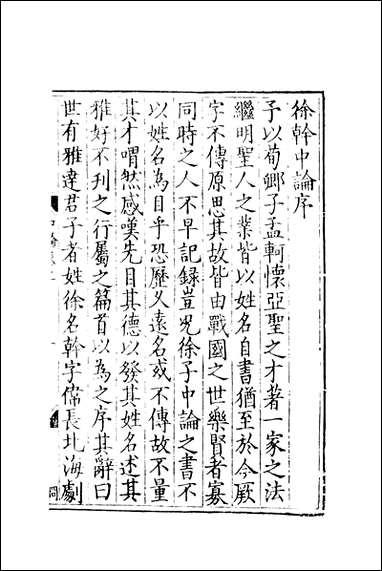 徐幹中論序
予以荀卿子孟軻懷亞聖之才著一家之法
繼明聖人之業皆以姓名自書猶至於今厥
字不傳原思其故皆由戰國之世樂賢者寡
同時之人不早記錄豈況徐子中論之書不
以姓名為目乎恐歷久遠名或不傳故不量
其才喟然感嘆先目其德以發其姓名述其
雅好不刊之行屬之篇首以為之序其辭曰
世有雅達君子者姓徐名幹字偉長北海劇